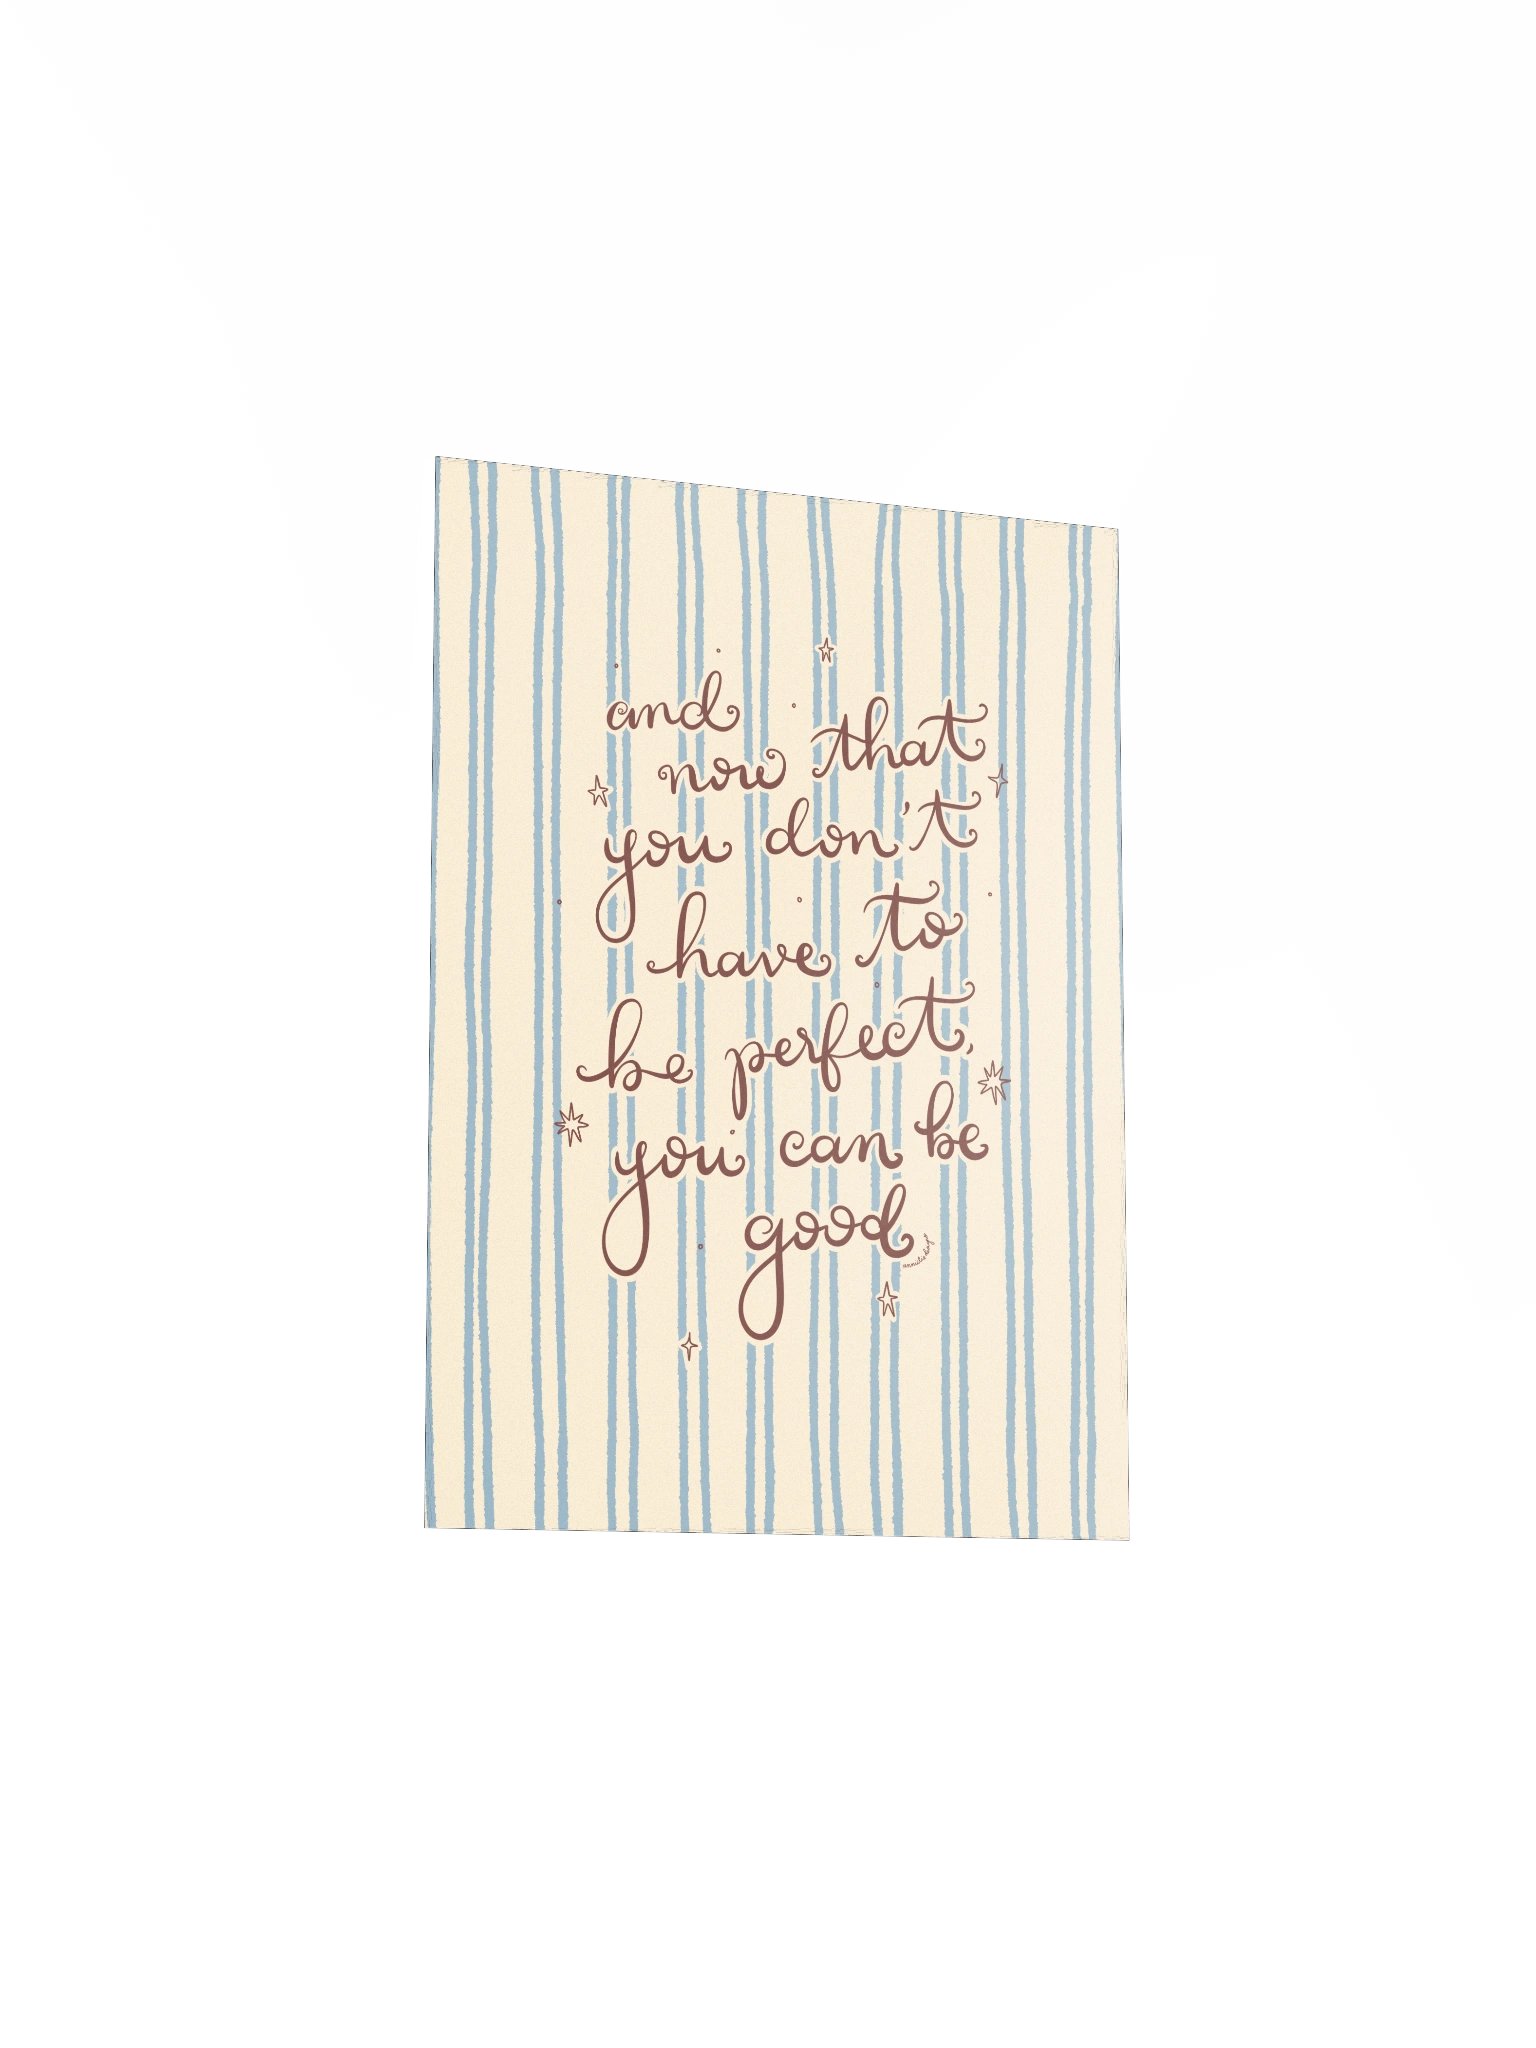 and
now that
you don't
have to
be perfect,
you can be
good